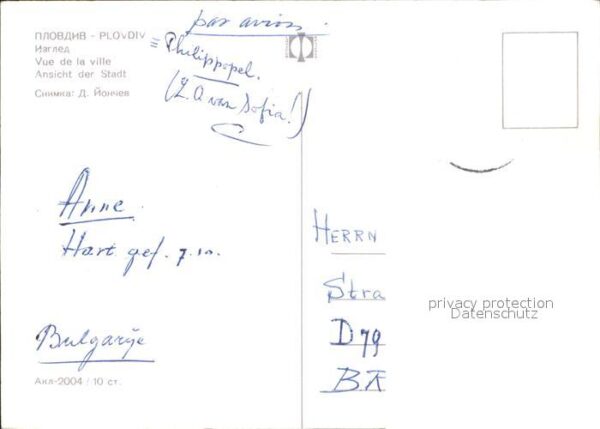 par avion
ПЛОВДИВ - PLOVDIV
= Philippopel.
Изглед
Vue de la ville
Ansicht der Stadt
(Z.O van Sofia!)
Снимка: Д. Йончев
Anne.
Hart gef. 7.10.
Bulgarije
Акл-2004 / 10 ст.
HERRN
Stra
D79
BR
privacy protection
Datenschutz